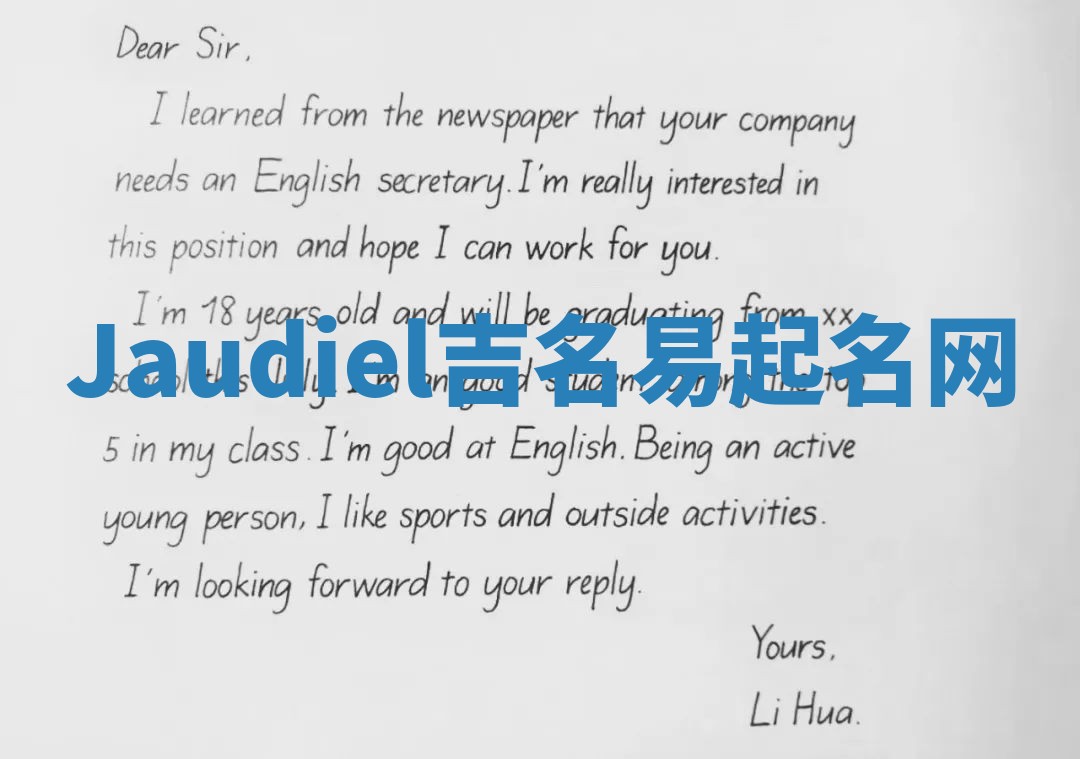 Dear Sir,
I learned from the newspaper that your company
needs an English secretary. I'm really interested in
this position and hope I can work for you.
I'm 18 years old and will be graduating from xx
Jaudiel吉名易起名网
school this July. I'm an good student
5 in my class. I'm good at English. Being an active
young person, I like sports and outside activities.
I'm looking forward to your reply.
Yours,
Li Hua.